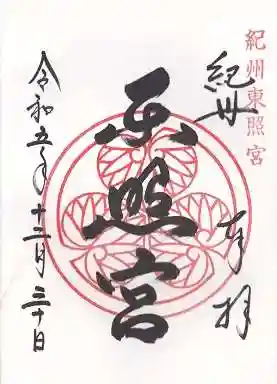 紀州東照宮
紀州
奉拝
東照宮
令和五年十二月三十日